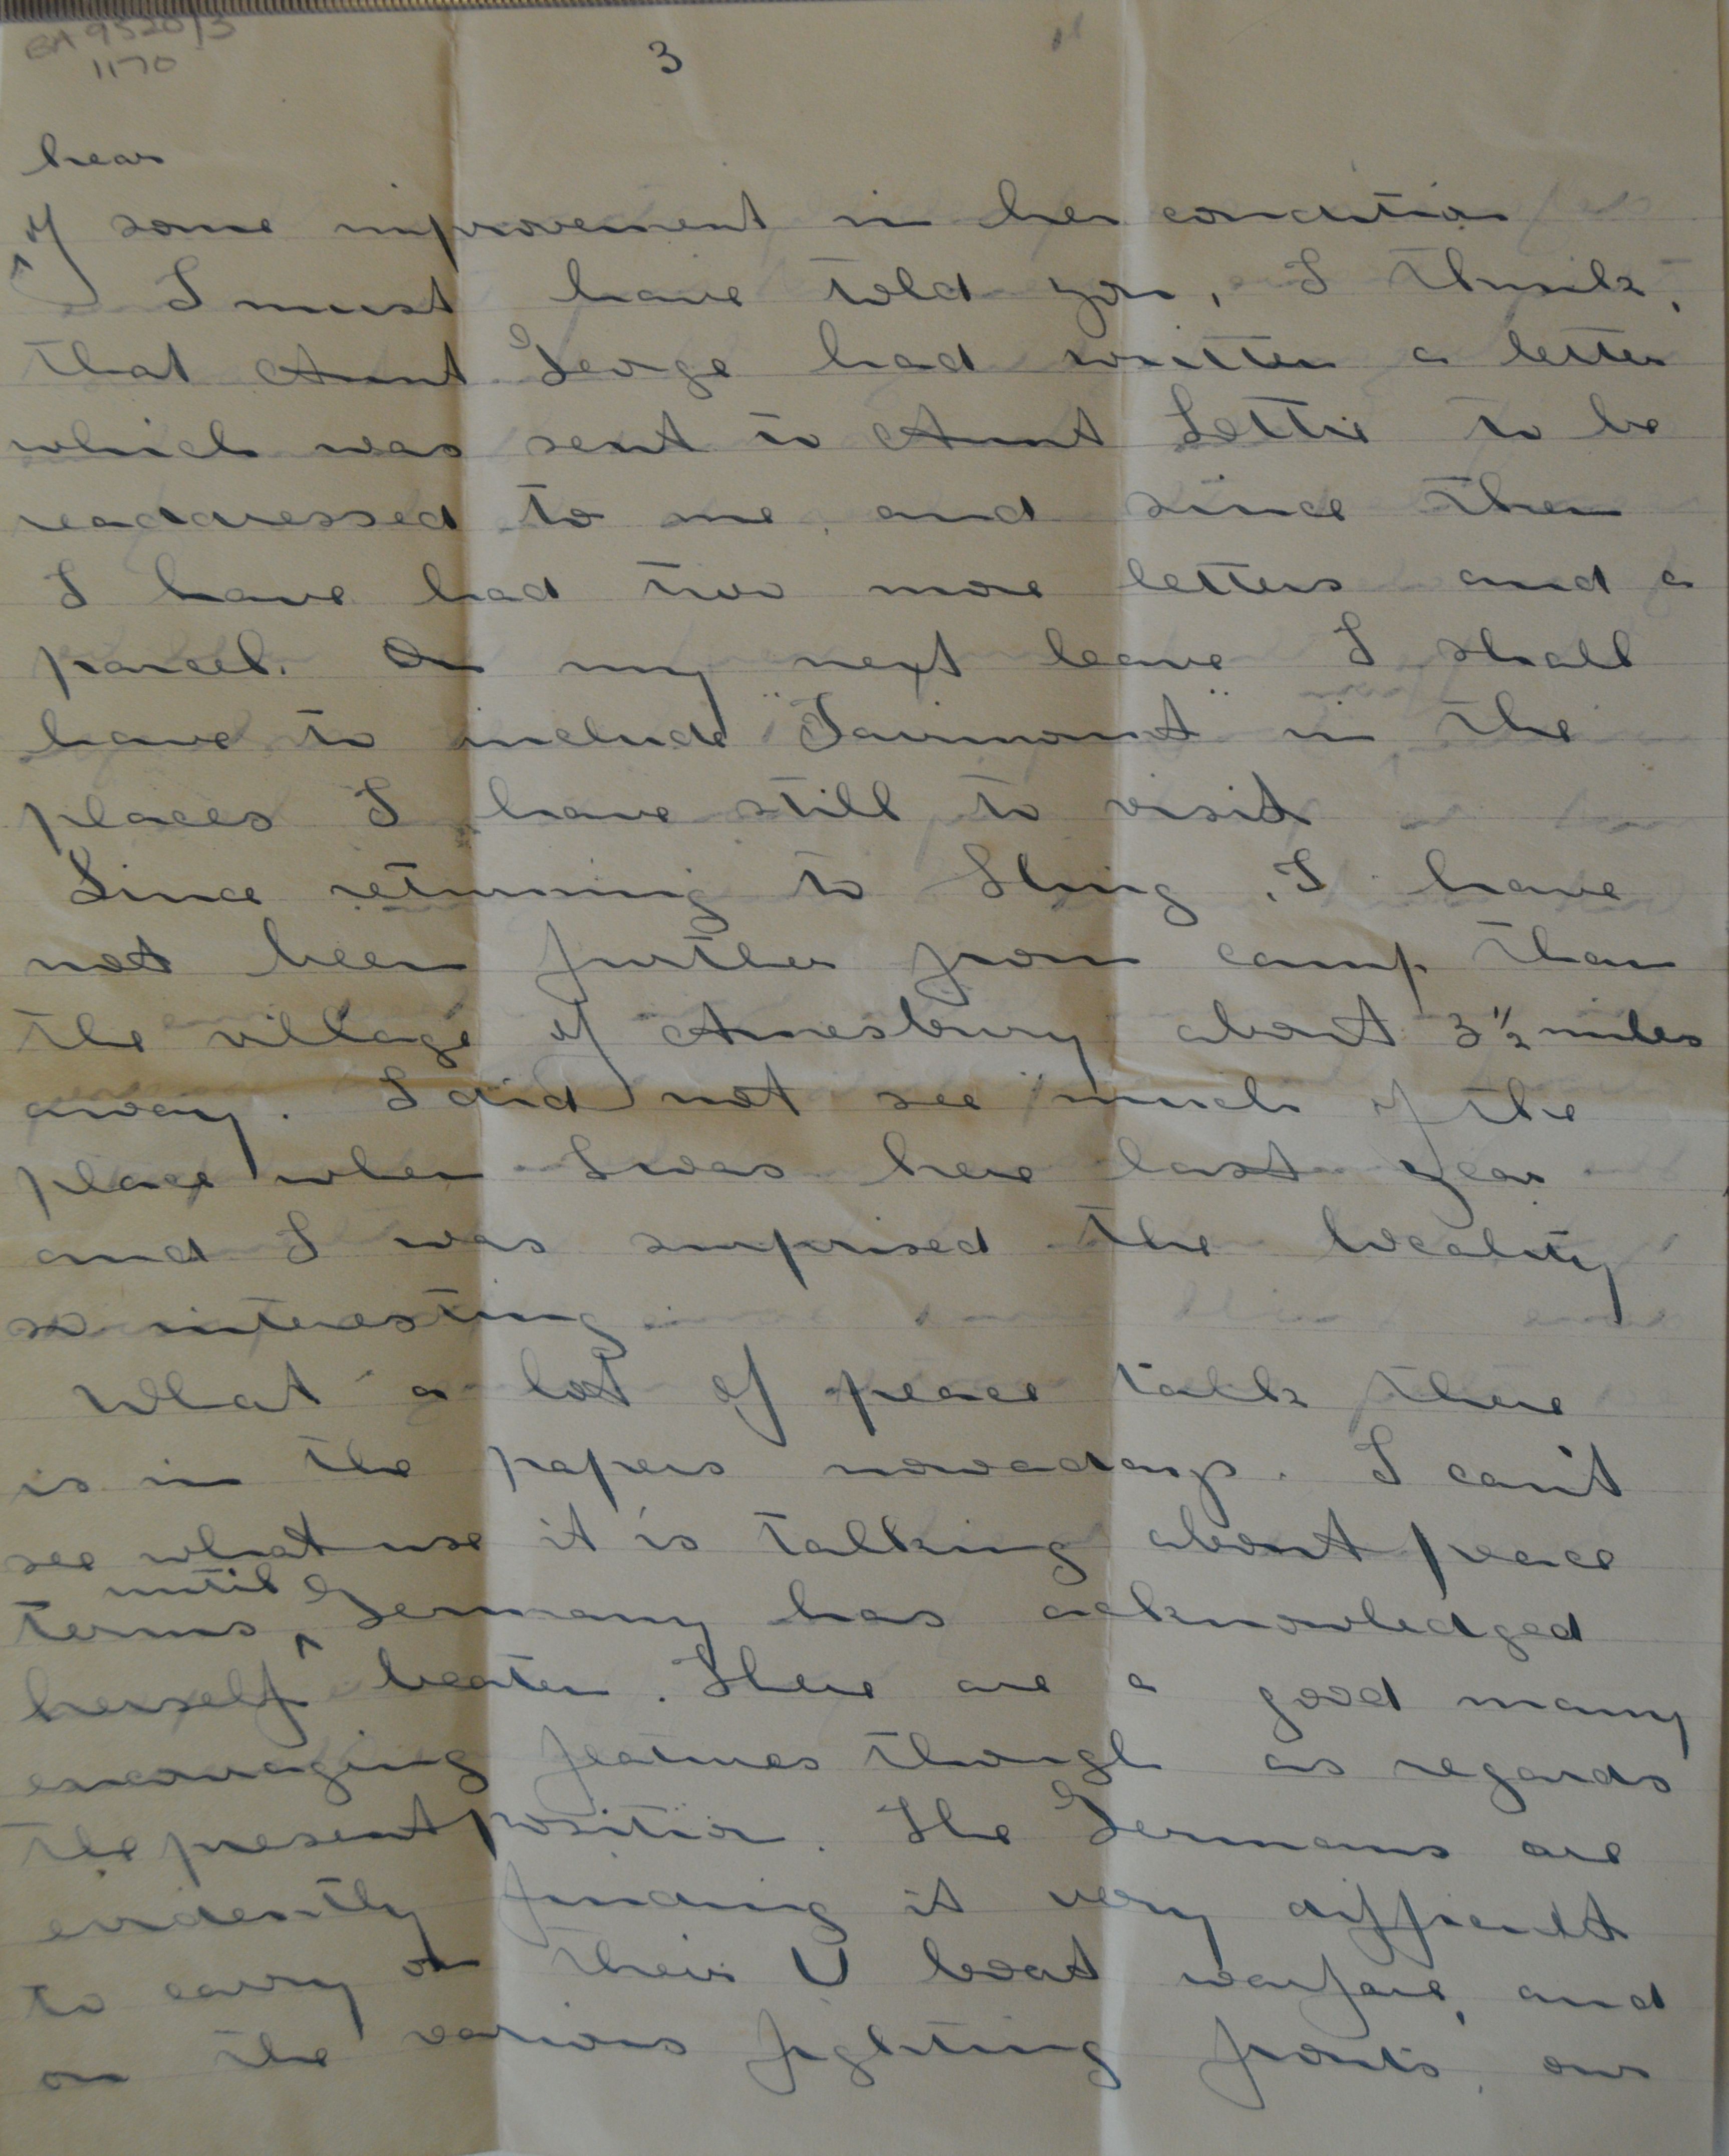 BA 9520/3
1170
3
hear
of some improvement in her condition
I must have told you, I think,
that Aunt George had written a letter
which was sent to Aunt Lettie to be
readdressed to me, and since then
I have had two more letters and a
parcel. On my next leave I shall
have to include "Fairmount" in the
places I have still to visit
Since returning to Sling, I have
not been further from camp than
the village of Amesbury about 3½ miles
away. I did not see much of the
place when I was here last year
and I was surprised the locality
so interesting
What a lot of peace talk there
is in the papers nowadays. I can't
see what use it is talking about peace
until
terms ^ Germany has acknowledged
herself beaten. There are a good many
encouraging features though as regards
the present position. The Germans are
evidently finding it very difficult
to carry on their U boat warfare, and
on the various fighting fronts, our